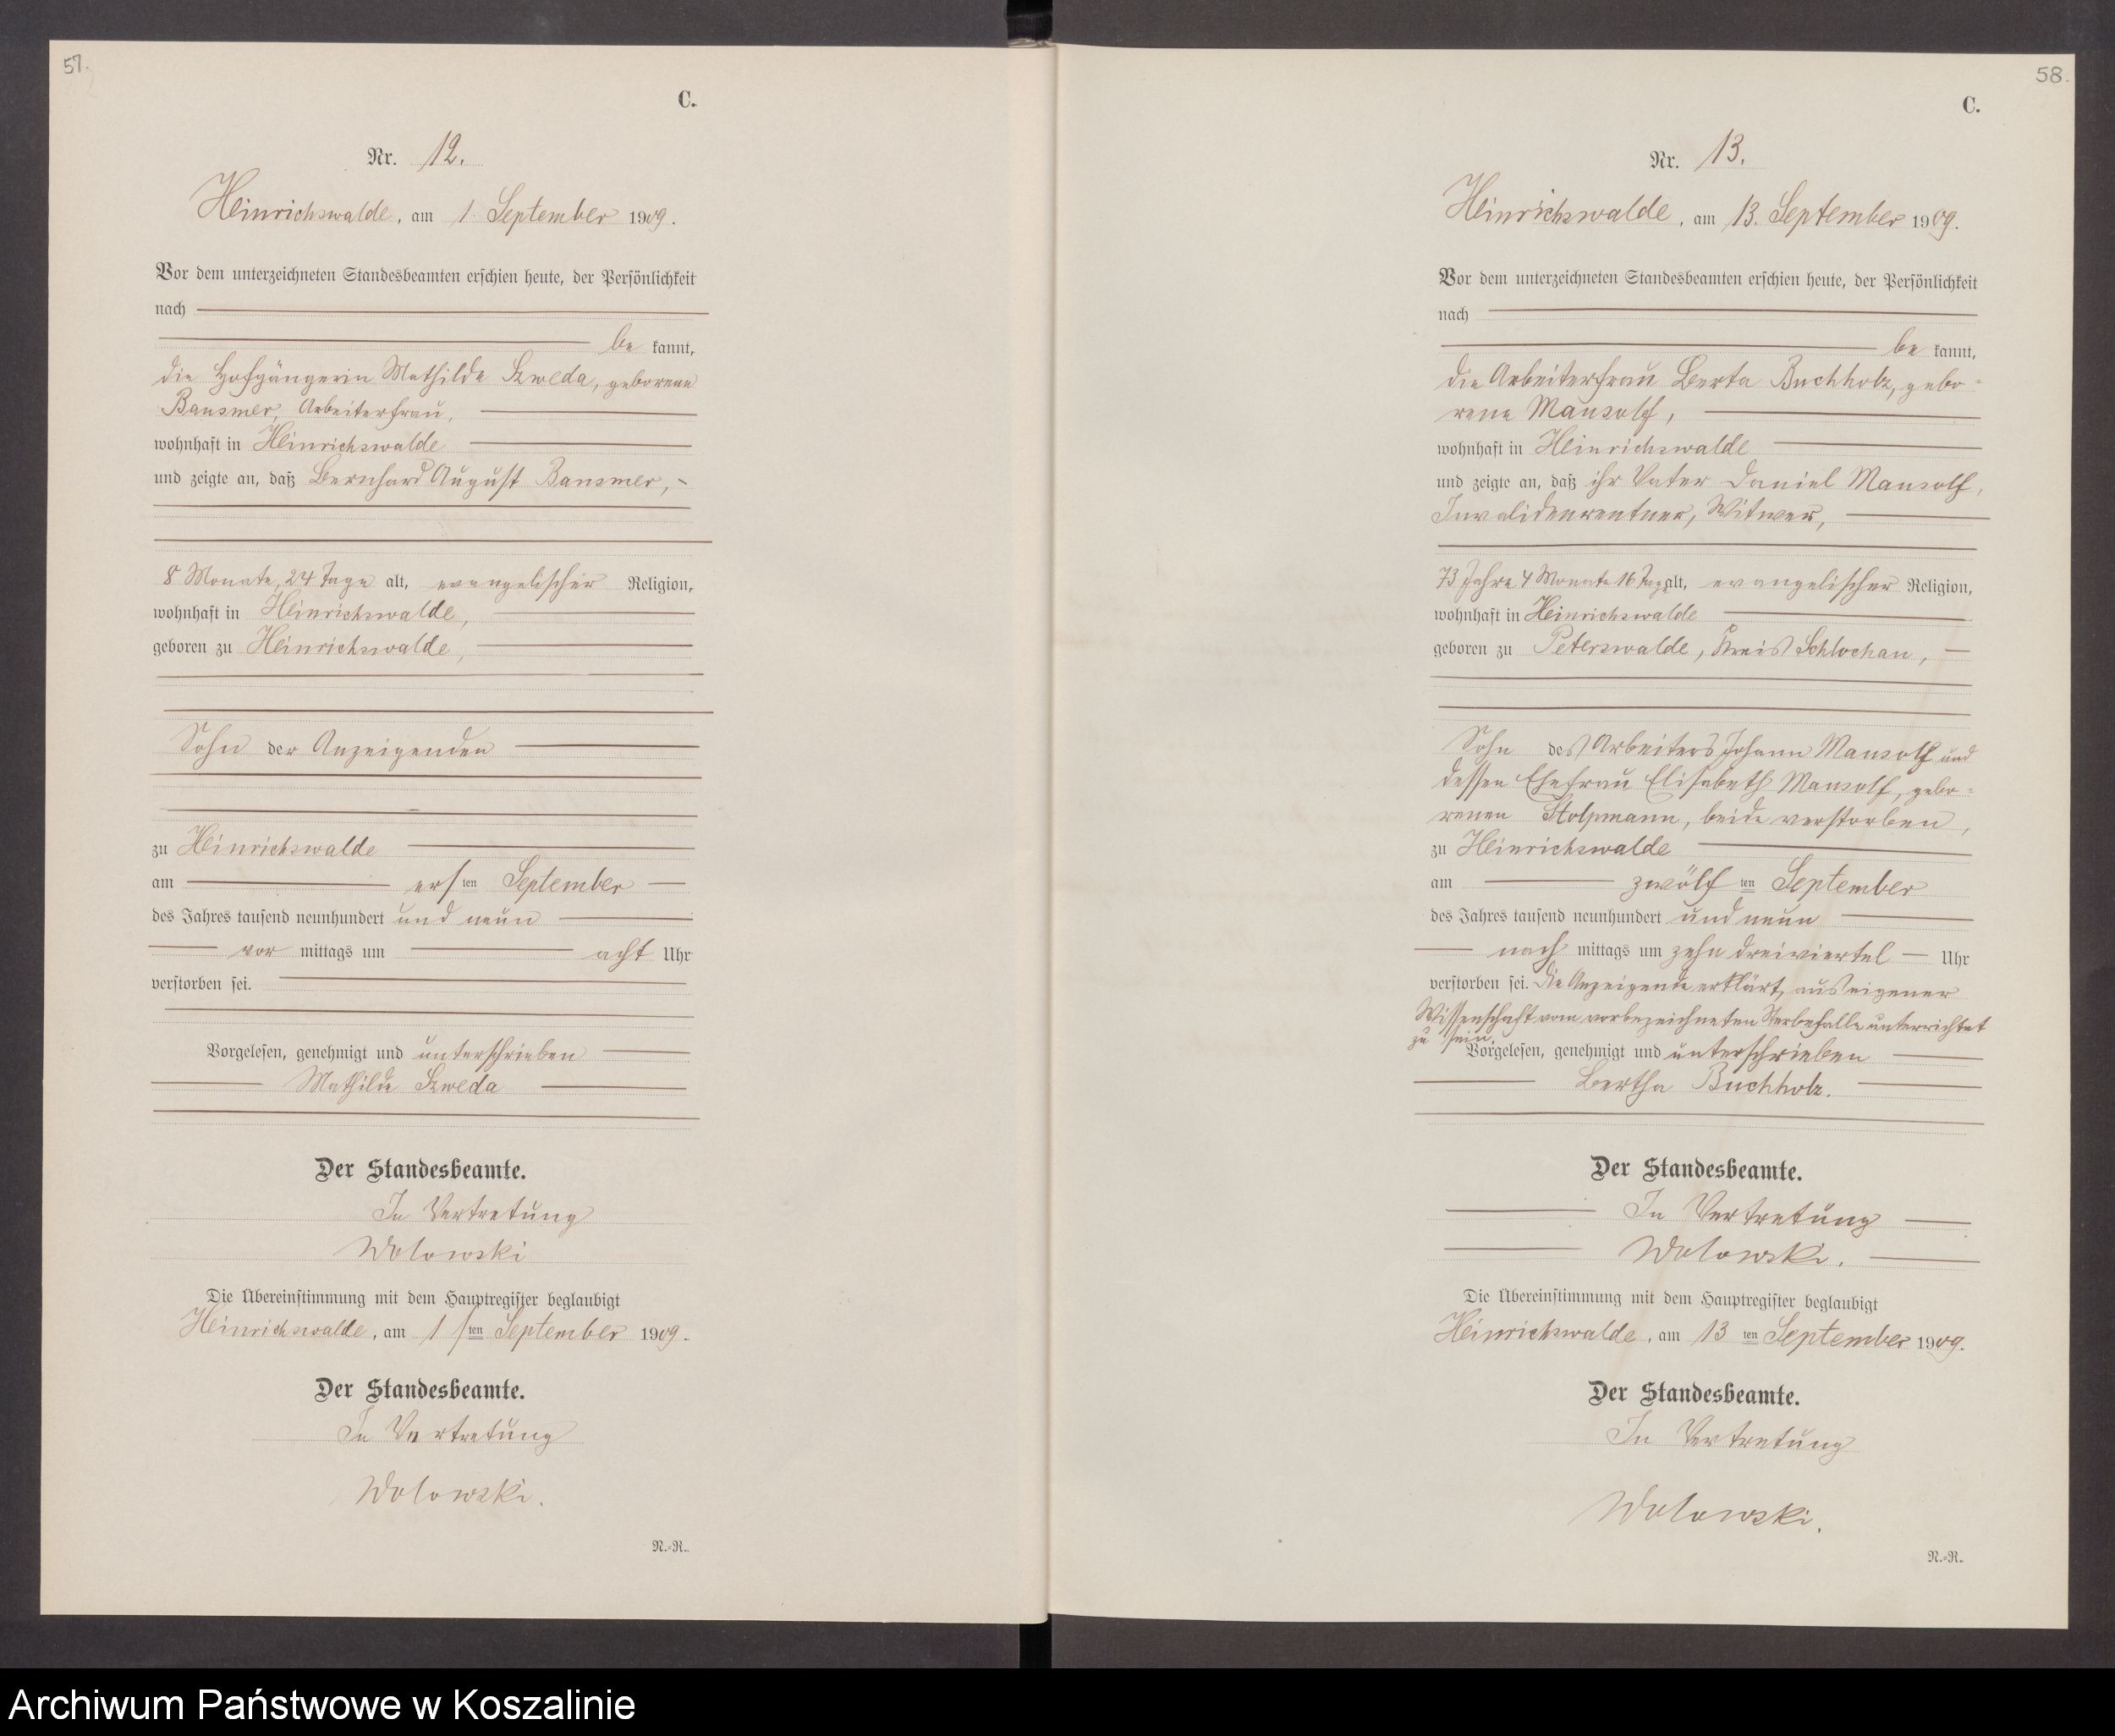 57.
C.
Nr. 12.
Heinrichswalde, am 1. September 1909.
Vor dem unterzeichneten Standesbeamten erschien heute, der Persönlichkeit
nach
be kannt,
die Hofgängerin Mathilde Szweda, geborene
Bansmer, Arbeiterfrau,
wohnhaft in Heinrichswalde
und zeigte an, daß Bernhard August Bansmer,
8 Monate, 24 Tage alt, evangelischer Religion,
wohnhaft in Heinrichswalde,
geboren zu Heinrichswalde,
Sohn der Anzeigenden
zu Heinrichswalde
am ersten September
des Jahres tausend neunhundert und neun
vor mittags um acht Uhr
verstorben sei.
Vorgelesen, genehmigt und unterschrieben
Mathilde Szweda
Der Standesbeamte.
In Vertretung
Wolowski
Die Übereinstimmung mit dem Hauptregister beglaubigt
Heinrichswalde, am 1sten September 1909.
Der Standesbeamte.
In Vertretung
Wolowski.
N.-R.
58.
C.
Nr. 13.
Heinrichswalde, am 13. September 1909.
Vor dem unterzeichneten Standesbeamten erschien heute, der Persönlichkeit
nach
be kannt,
die Arbeiterfrau Berta Buchholz, gebo-
rene Mansolf,
wohnhaft in Heinrichswalde
und zeigte an, daß ihr Vater Daniel Mansolf,
Invalidenrentner, Witwer,
73 Jahre 4 Monate 16 Tage alt, evangelischer Religion,
wohnhaft in Heinrichswalde
geboren zu Peterswalde, Kreis Schlochau,
Sohn des Arbeiters Johann Mansolf und
dessen Ehefrau Elisabeth Mansolf, gebo-
renen Stolpmann, beide verstorben,
zu Heinrichswalde
am zwölften September
des Jahres tausend neunhundert und neun
nach mittags um zehn dreiviertel Uhr
verstorben sei. Die Anzeigende erklärt, aus eigener
Wissenschaft vom vorbezeichneten Sterbefalle unterrichtet
zu sein.
Vorgelesen, genehmigt und unterschrieben
Bertha Buchholz.
Der Standesbeamte.
In Vertretung
Wolowski.
Die Übereinstimmung mit dem Hauptregister beglaubigt
Heinrichswalde, am 13ten September 1909.
Der Standesbeamte.
In Vertretung
Wolowski.
N.-R.
Archiwum Państwowe w Koszalinie